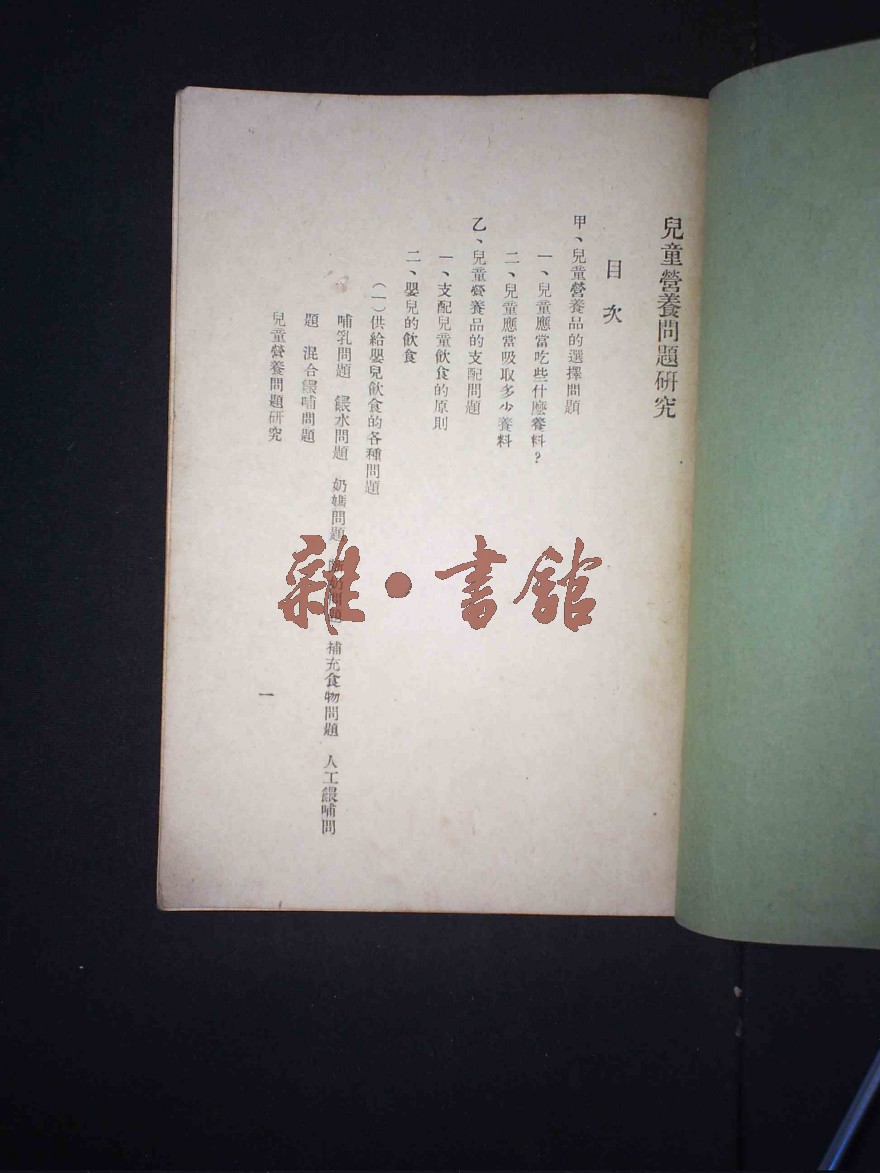 兒童營養問題研究
目次
甲、兒童營養品的選擇問題
一、兒童應當吃些什麼養料?
二、兒童應當吸取多少養料
乙、兒童營養品的支配問題
一、支配兒童飲食的原則
二、嬰兒的飲食
(一)供給嬰兒飲食的各種問題
哺乳問題 餵水問題 奶媽問題 斷奶問題 補充食物問題 人工餵哺問
題 混合餵哺問題
兒童營養問題研究
一
雜·書館